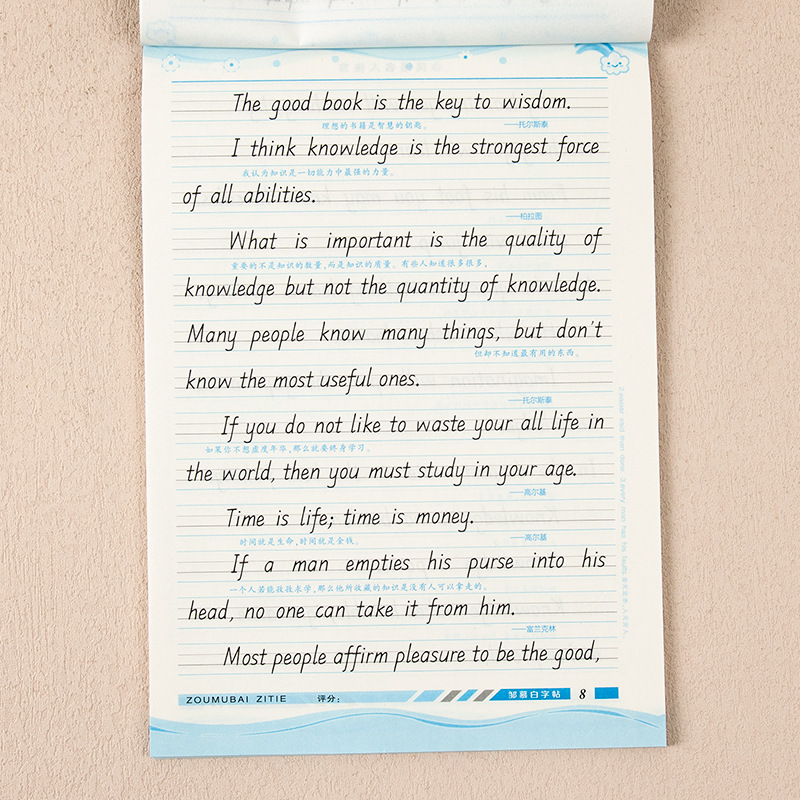 The good book is the key to wisdom.
理想的书籍是智慧的钥匙。 ——托尔斯泰
I think knowledge is the strongest force
我认为知识是一切能力中最强的力量。
of all abilities.
——柏拉图
What is important is the quality of
重要的不是知识的数量，而是知识的质量。有些人知道很多很多，
knowledge but not the quantity of knowledge.
Many people know many things, but don't
但却不知道最有用的东西。
know the most useful ones.
——托尔斯泰
If you do not like to waste your all life in
如果你不想虚度年华，那么就要终身学习。
the world, then you must study in your age.
——高尔基
Time is life; time is money.
时间就是生命，时间就是金钱。 ——高尔基
If a man empties his purse into his
一个人若能孜孜求学，那么他所收藏的知识是没有人可以拿走的。
head, no one can take it from him.
——富兰克林
Most people affirm pleasure to be the good,
ZOUMUBAI ZITIE 评分： 邹慕白字帖 8